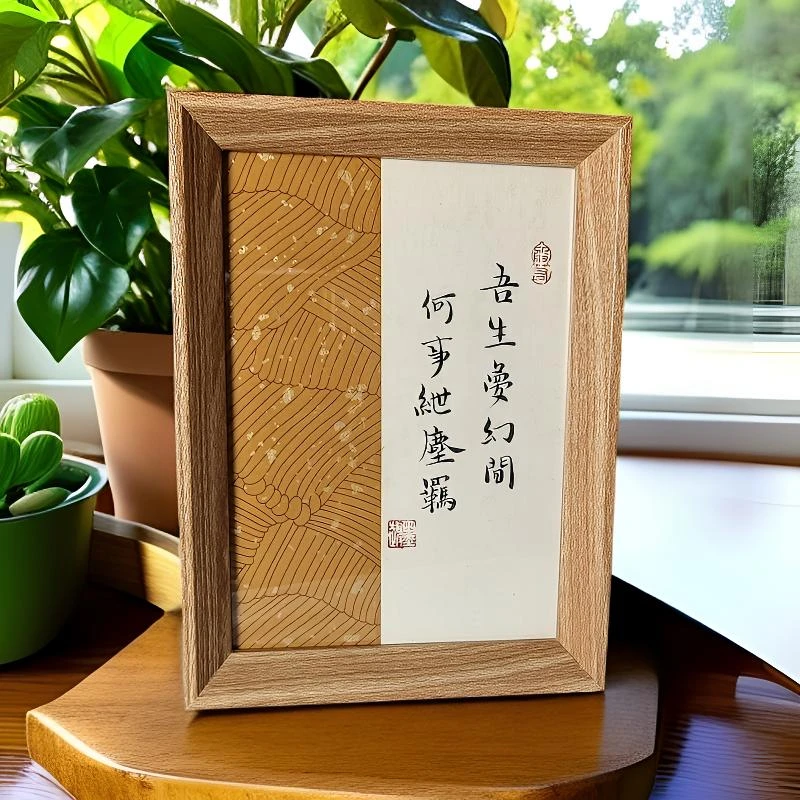 吾生夢幻間
何事紲塵羈